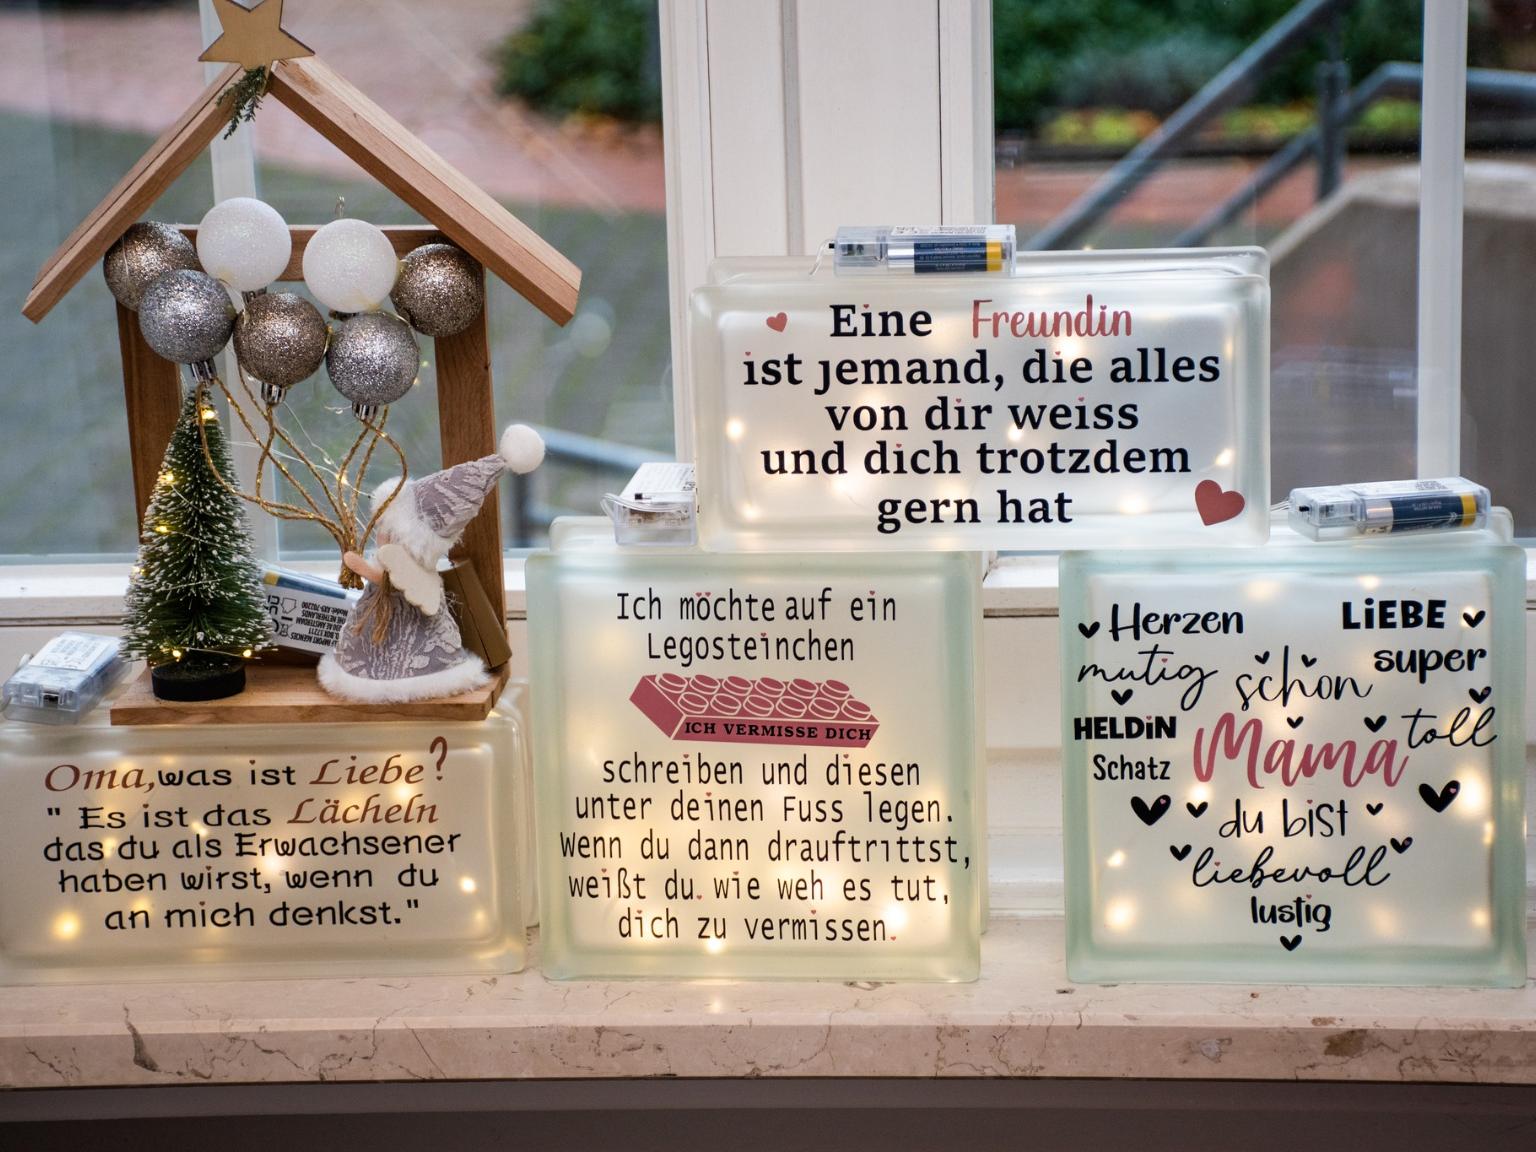 Eine Freundin
ist jemand, die alles
von dir weiss
und dich trotzdem
gern hat
Oma, was ist Liebe?
" Es ist das Lächeln
das du als Erwachsener
haben wirst, wenn du
an mich denkst."
Ich möchte auf ein
Legosteinchen
ICH VERMISSE DICH
schreiben und diesen
unter deinen Fuss legen.
Wenn du dann drauftrittst,
weißt du wie weh es tut,
dich zu vermissen.
Herzen LiEBE
mutig schon super
HELDiN Mama toll
Schatz
du bist
liebevoll
lustig